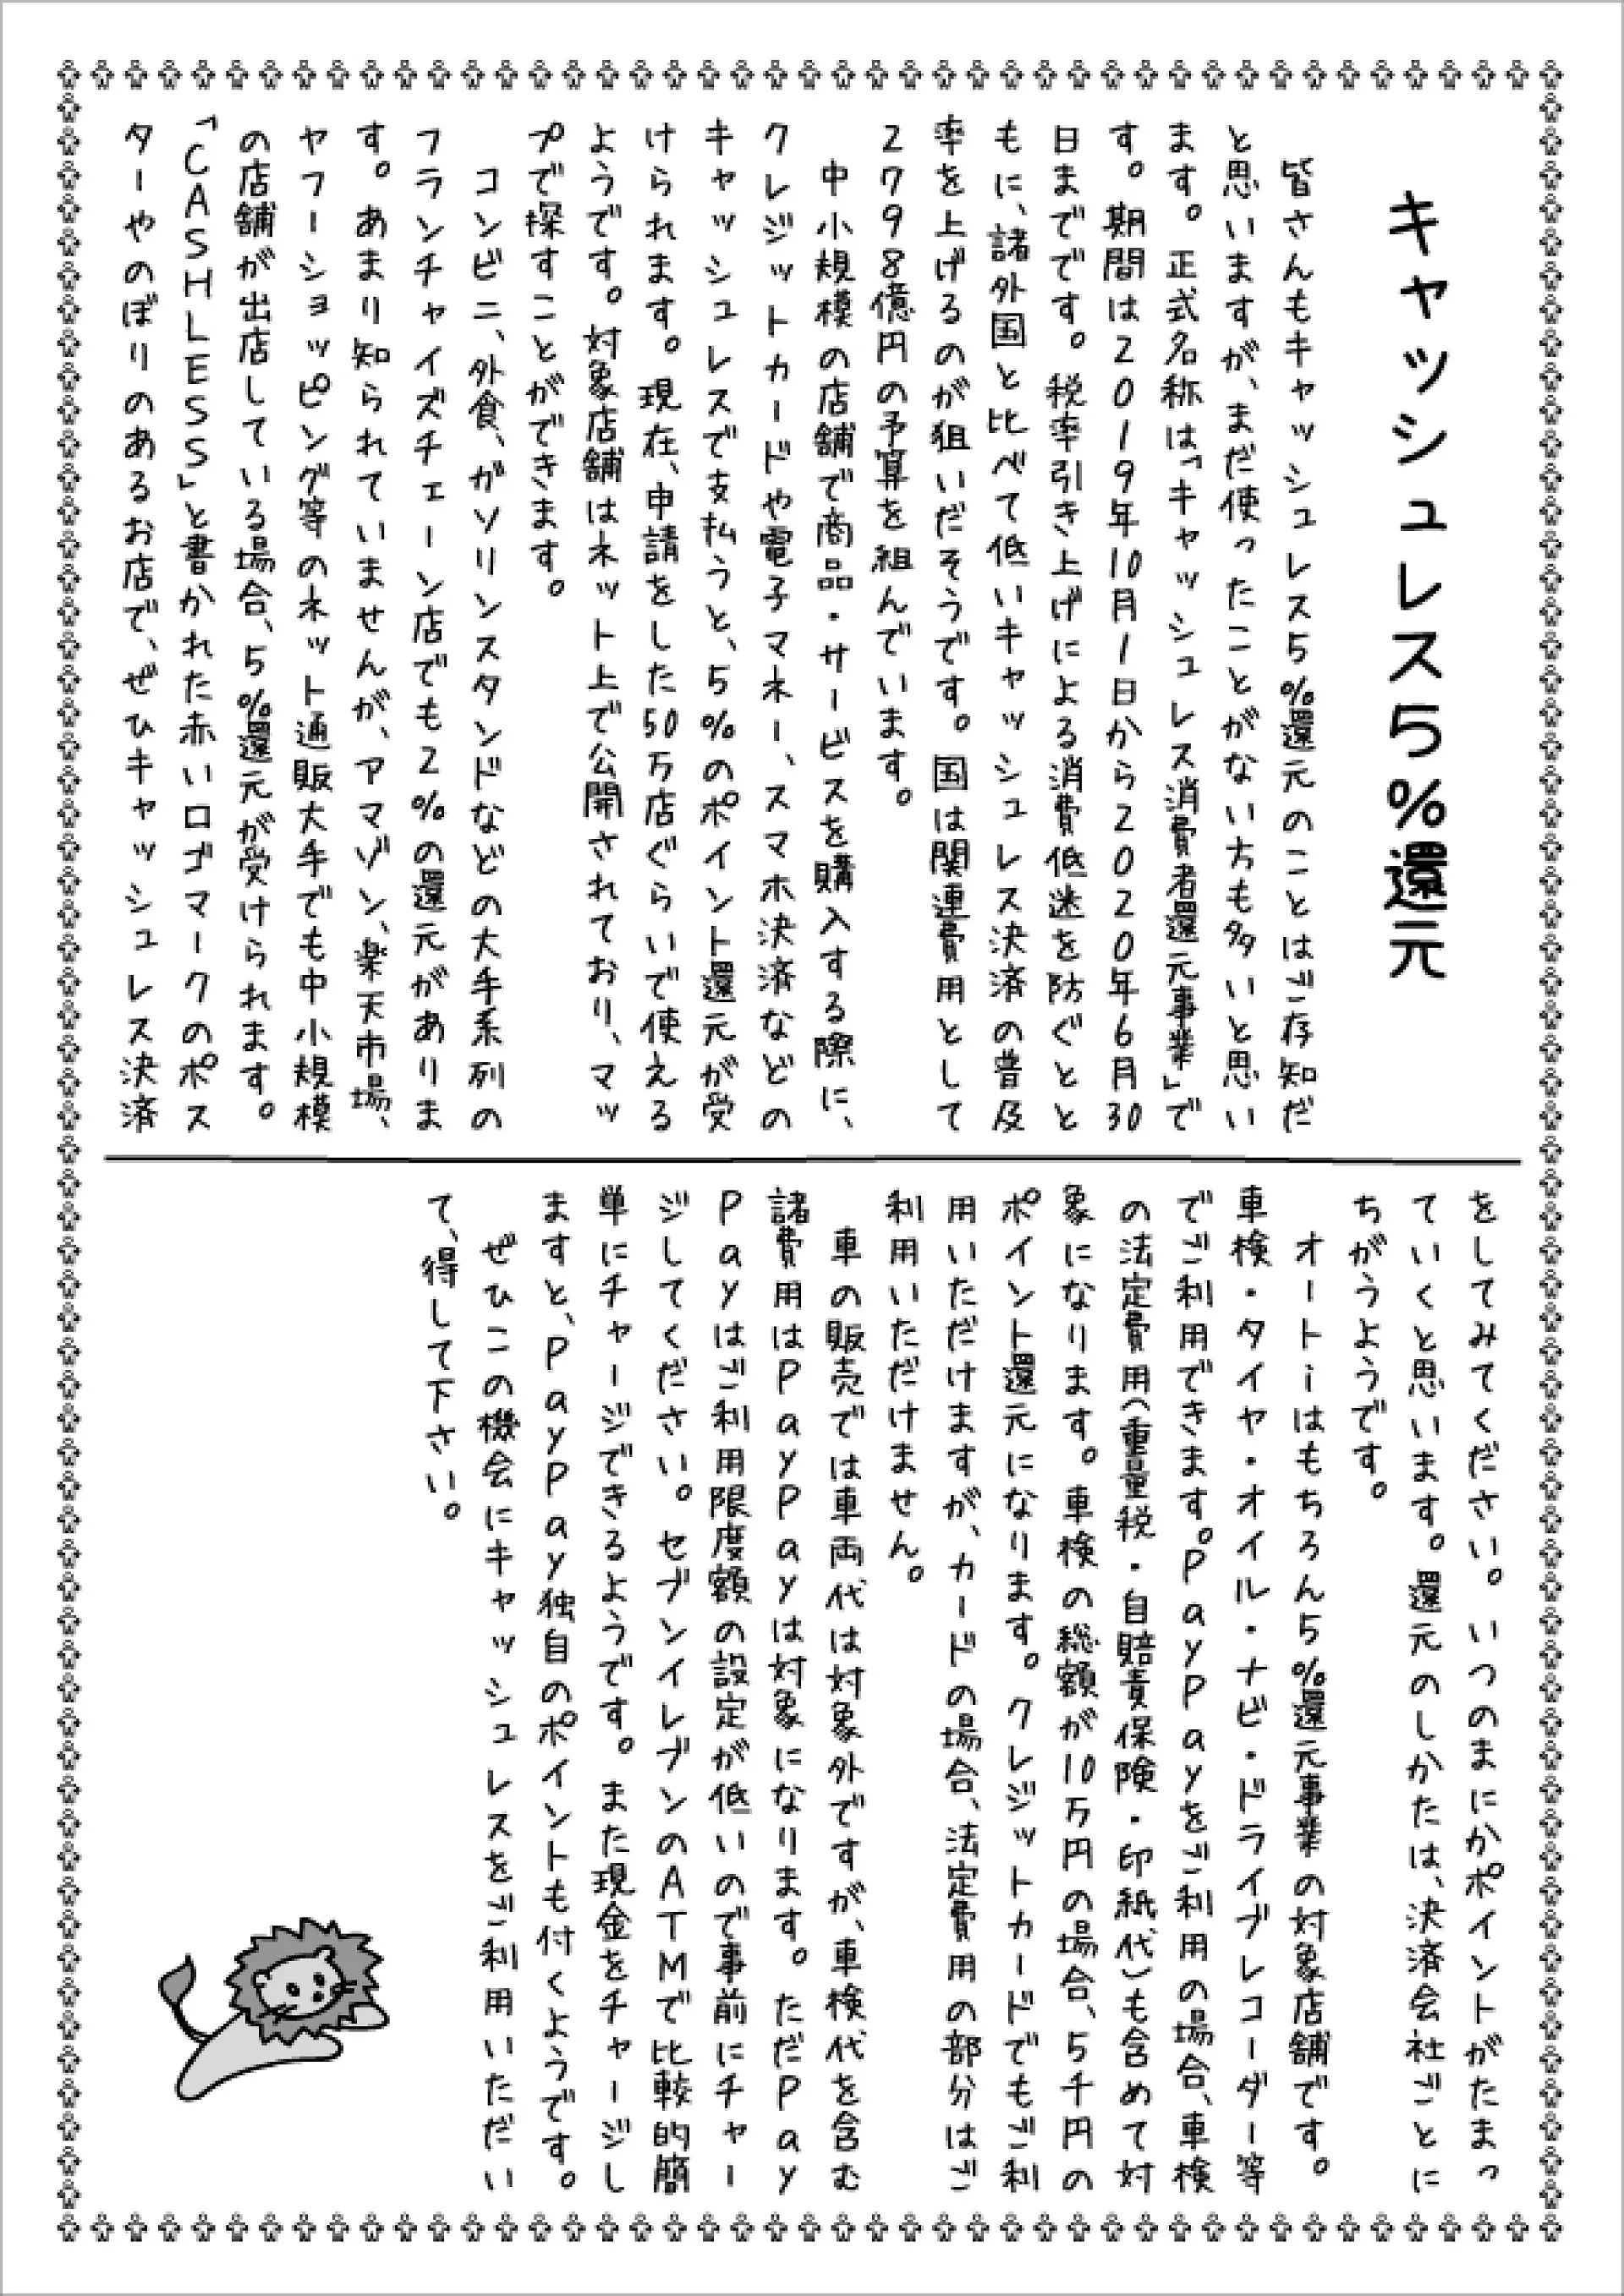 キャッシュレス5%還元
皆さんもキャッシュレス5%還元のことはご存知だ
と思いますが、まだ使ったことがない方も多いと思い
ます。正式名称は「キャッシュレス消費者還元事業」で
す。期間は2019年10月1日から2020年6月30
日までです。税率引き上げによる消費低迷を防ぐとと
もに、諸外国と比べて低いキャッシュレス決済の普及
率を上げるのが狙いだそうです。国は関連費用として
2798億円の予算を組んでいます。
中小規模の店舗で商品・サービスを購入する際に、
クレジットカードや電子マネー、スマホ決済などの
キャッシュレスで支払うと、5%のポイント還元が受
けられます。現在、申請をした50万店ぐらいで使える
ようです。対象店舗はネット上で公開されており、マッ
プで探すことができます。
コンビニ、外食、ガソリンスタンドなどの大手系列の
フランチャイズチェーン店でも2%の還元がありま
す。あまり知られていませんが、アマゾン、楽天市場、
ヤフーショッピング等のネット通販大手でも中小規模
の店舗が出店している場合、5%還元が受けられます。
「CASHLESS」と書かれた赤いロゴマークのポス
ターやのぼりのあるお店で、ぜひキャッシュレス決済
をしてみてください。いつのまにかポイントがたまっ
ていくと思います。還元のしかたは、決済会社ごとに
ちがうようです。
オートiはもちろん5%還元事業の対象店舗です。
車検・タイヤ・オイル・ナビ・ドライブレコーダー等
でご利用できます。PayPayをご利用の場合、車検
の法定費用(重量税・自賠責保険・印紙代)も含めて対
象になります。車検の総額が10万円の場合、5千円の
ポイント還元になります。クレジットカードでもご利
用いただけますが、カードの場合、法定費用の部分はご
利用いただけません。
車の販売では車両代は対象外ですが、車検代を含む
諸費用はPayPayは対象になります。ただPay
Payはご利用限度額の設定が低いので事前にチャー
ジしてください。セブンイレブンのATMで比較的簡
単にチャージできるようです。また現金をチャージし
ますと、PayPay独自のポイントも付くようです。
ぜひこの機会にキャッシュレスをご利用いただい
て、得して下さい。